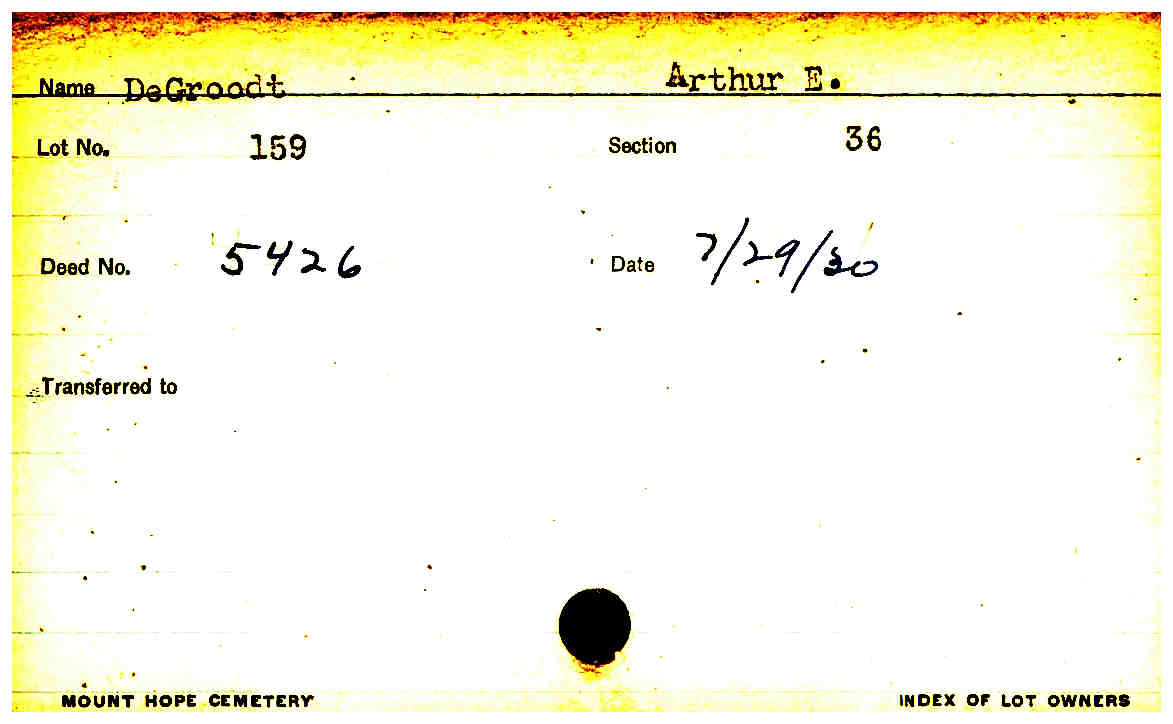 Name DeGroodt Arthur E.
Lot No. 159 Section 36
Deed No. 5426 Date 7/29/30
Transferred to
MOUNT HOPE CEMETERY INDEX OF LOT OWNERS